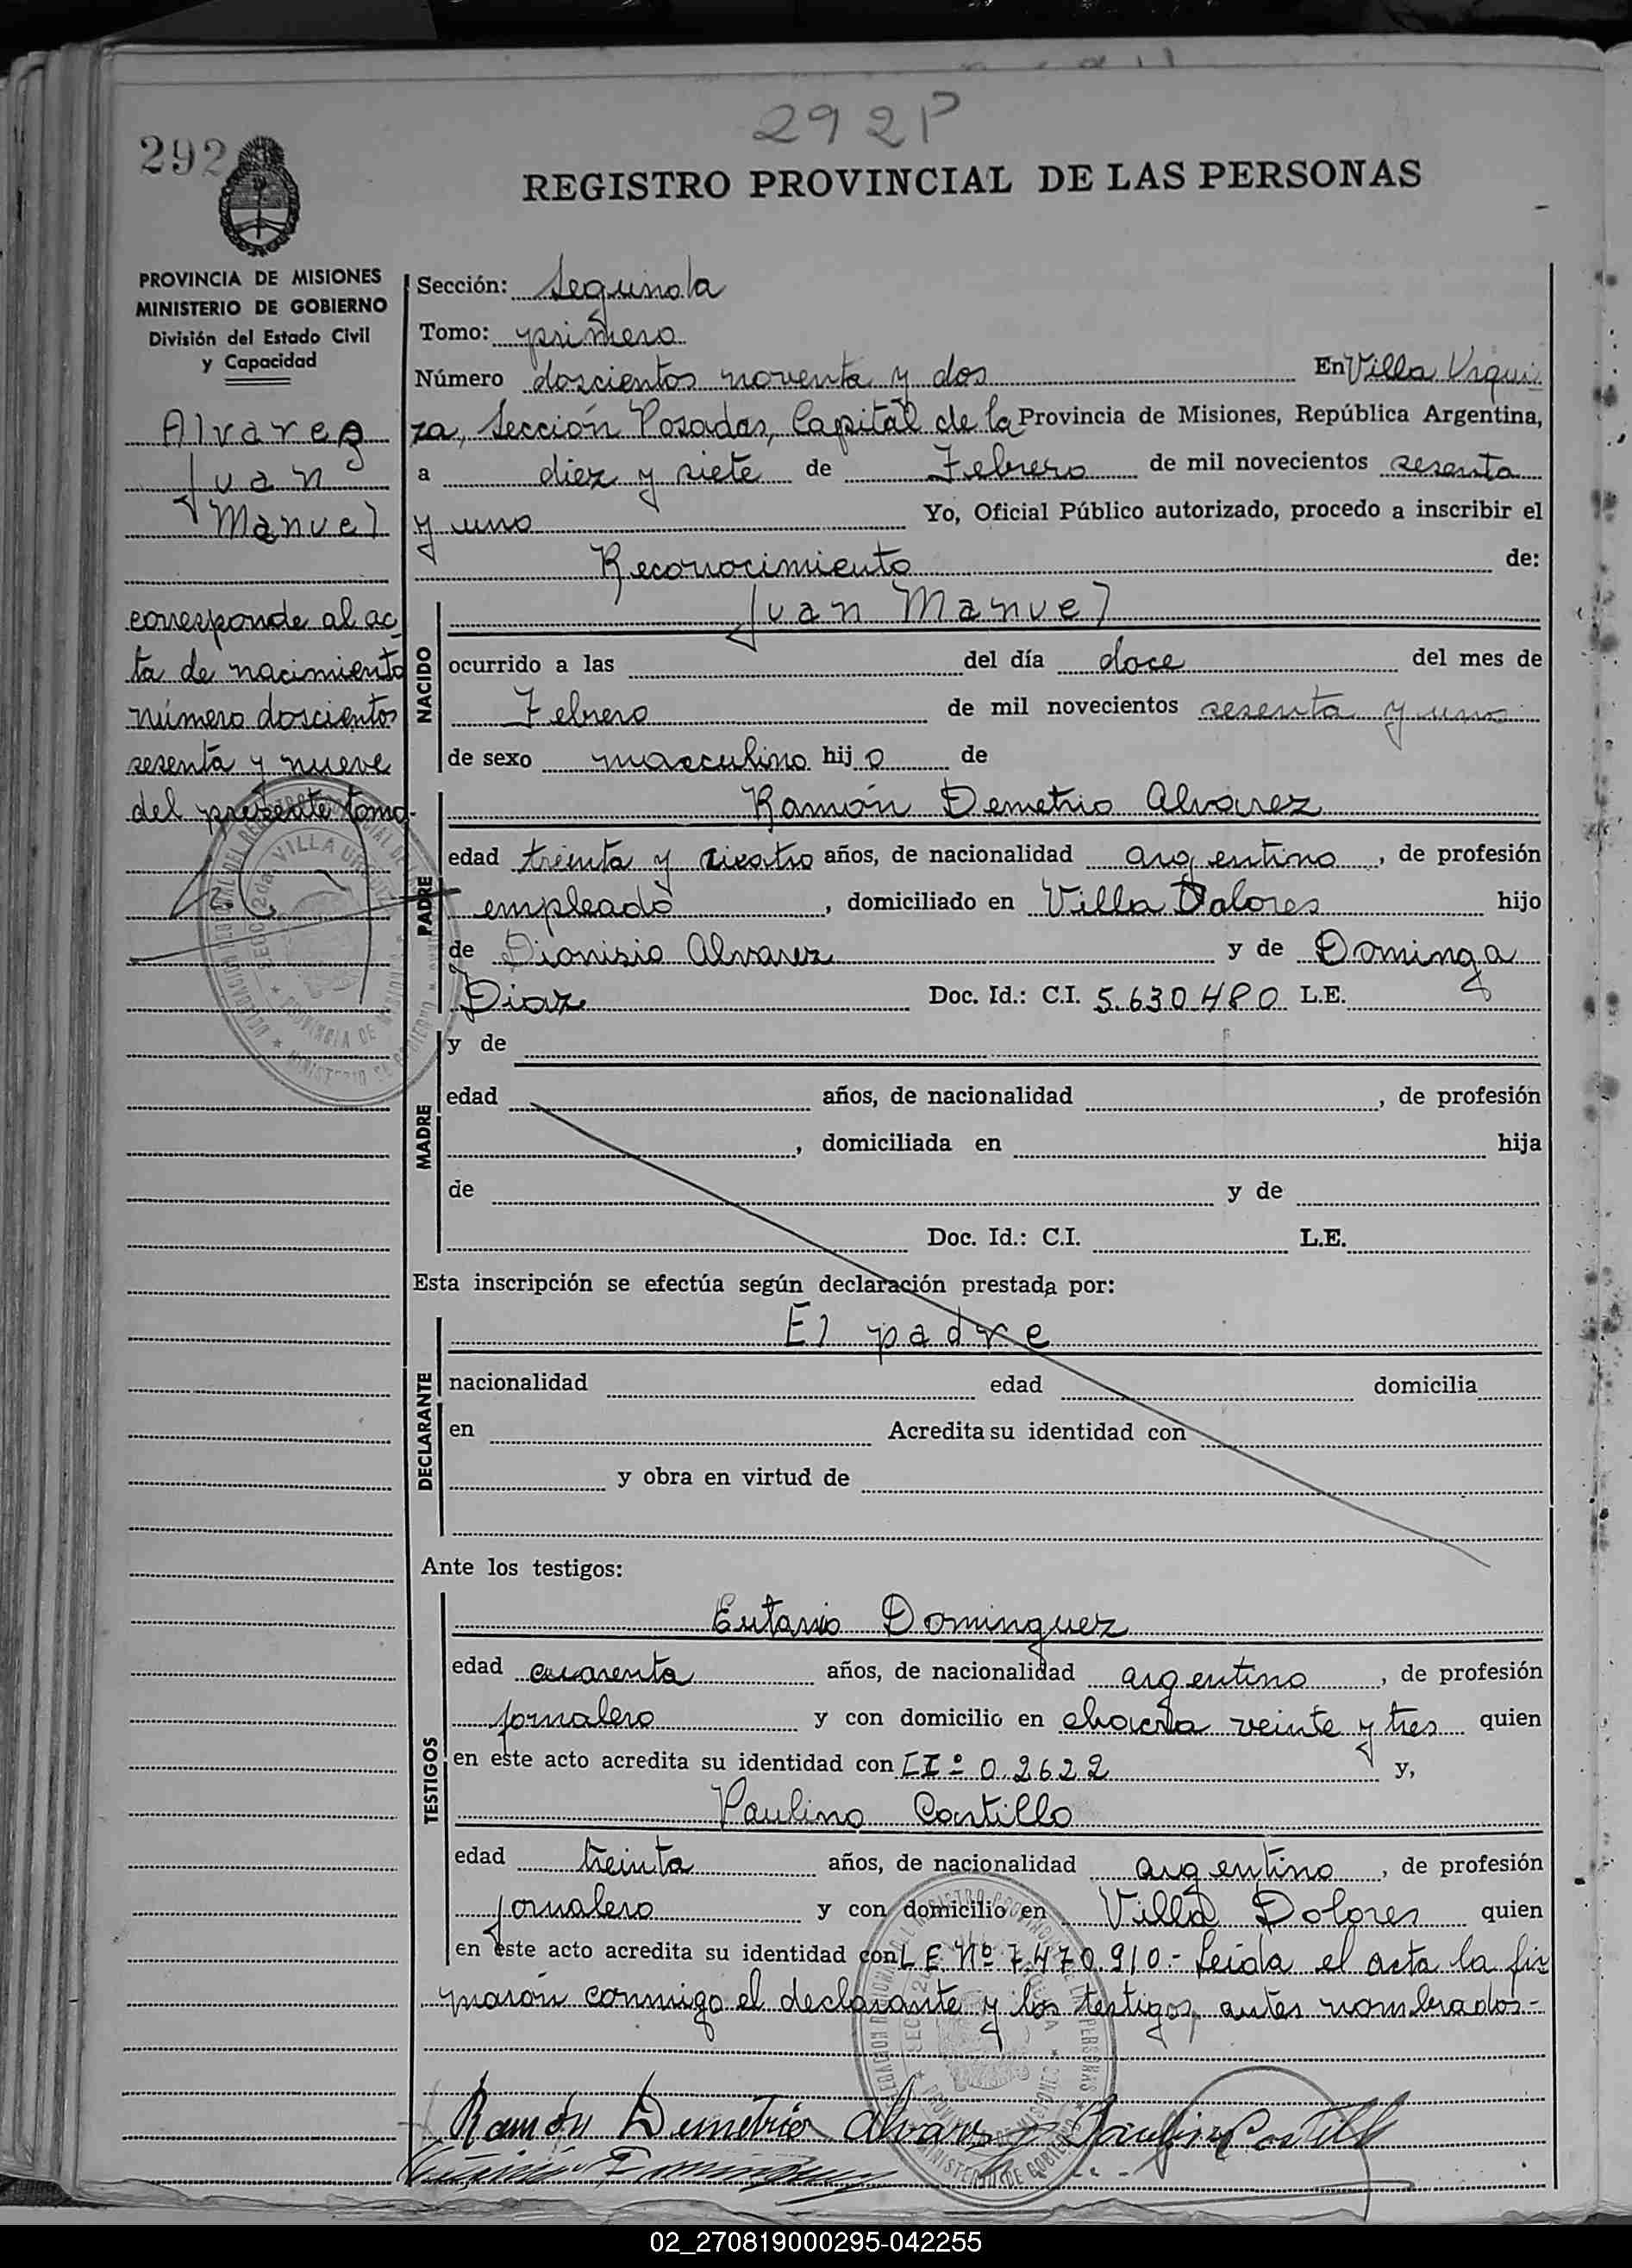 292P
292
REGISTRO PROVINCIAL DE LAS PERSONAS
PROVINCIA DE MISIONES
MINISTERIO DE GOBIERNO
División del Estado Civil
y Capacidad
Alvarez
Juan
Manuel
corresponde al ac
ta de nacimiento
número doscientos
sesenta y nueve
del presente tomo.
Sección: Segunda
Tomo: primero
Número doscientos noventa y dos En Villa Urqui
za, Sección Posadas, Capital de la Provincia de Misiones, República Argentina,
a diez y siete de Febrero de mil novecientos sesenta
y uno Yo, Oficial Público autorizado, procedo a inscribir el
Reconocimiento de:
NACIDO
Juan Manuel
ocurrido a las del día doce del mes de
Febrero de mil novecientos sesenta y uno
de sexo masculino hij o de
PADRE
Ramón Demetrio Alvarez
edad treinta y cuatro años, de nacionalidad argentino, de profesión
empleado, domiciliado en Villa Dolores hijo
de Dionisio Alvarez y de Dominga
Diaz Doc. Id.: C.I. 5.630.480 L.E.
MADRE
y de
edad años, de nacionalidad , de profesión
, domiciliada en hija
de y de
Doc. Id.: C.I. L.E.
Esta inscripción se efectúa según declaración prestada por:
DECLARANTE
El padre
nacionalidad edad domicilia
en Acredita su identidad con
y obra en virtud de
Ante los testigos:
TESTIGOS
Dominguez
edad cuarenta años, de nacionalidad argentino, de profesión
jornalero y con domicilio en chacra veinte y tres quien
en este acto acredita su identidad con 0.2622 y,
Paulino Castillo
edad treinta años, de nacionalidad argentino, de profesión
jornalero y con domicilio en Villa Dolores quien
en este acto acredita su identidad con L E Nº 7.470.910.- Leida el acta la fir
maron conmigo el declarante y los testigos, antes nombrados.-
Ramón Demetrio Alvarez Paulino Castillo
02_270819000295-042255